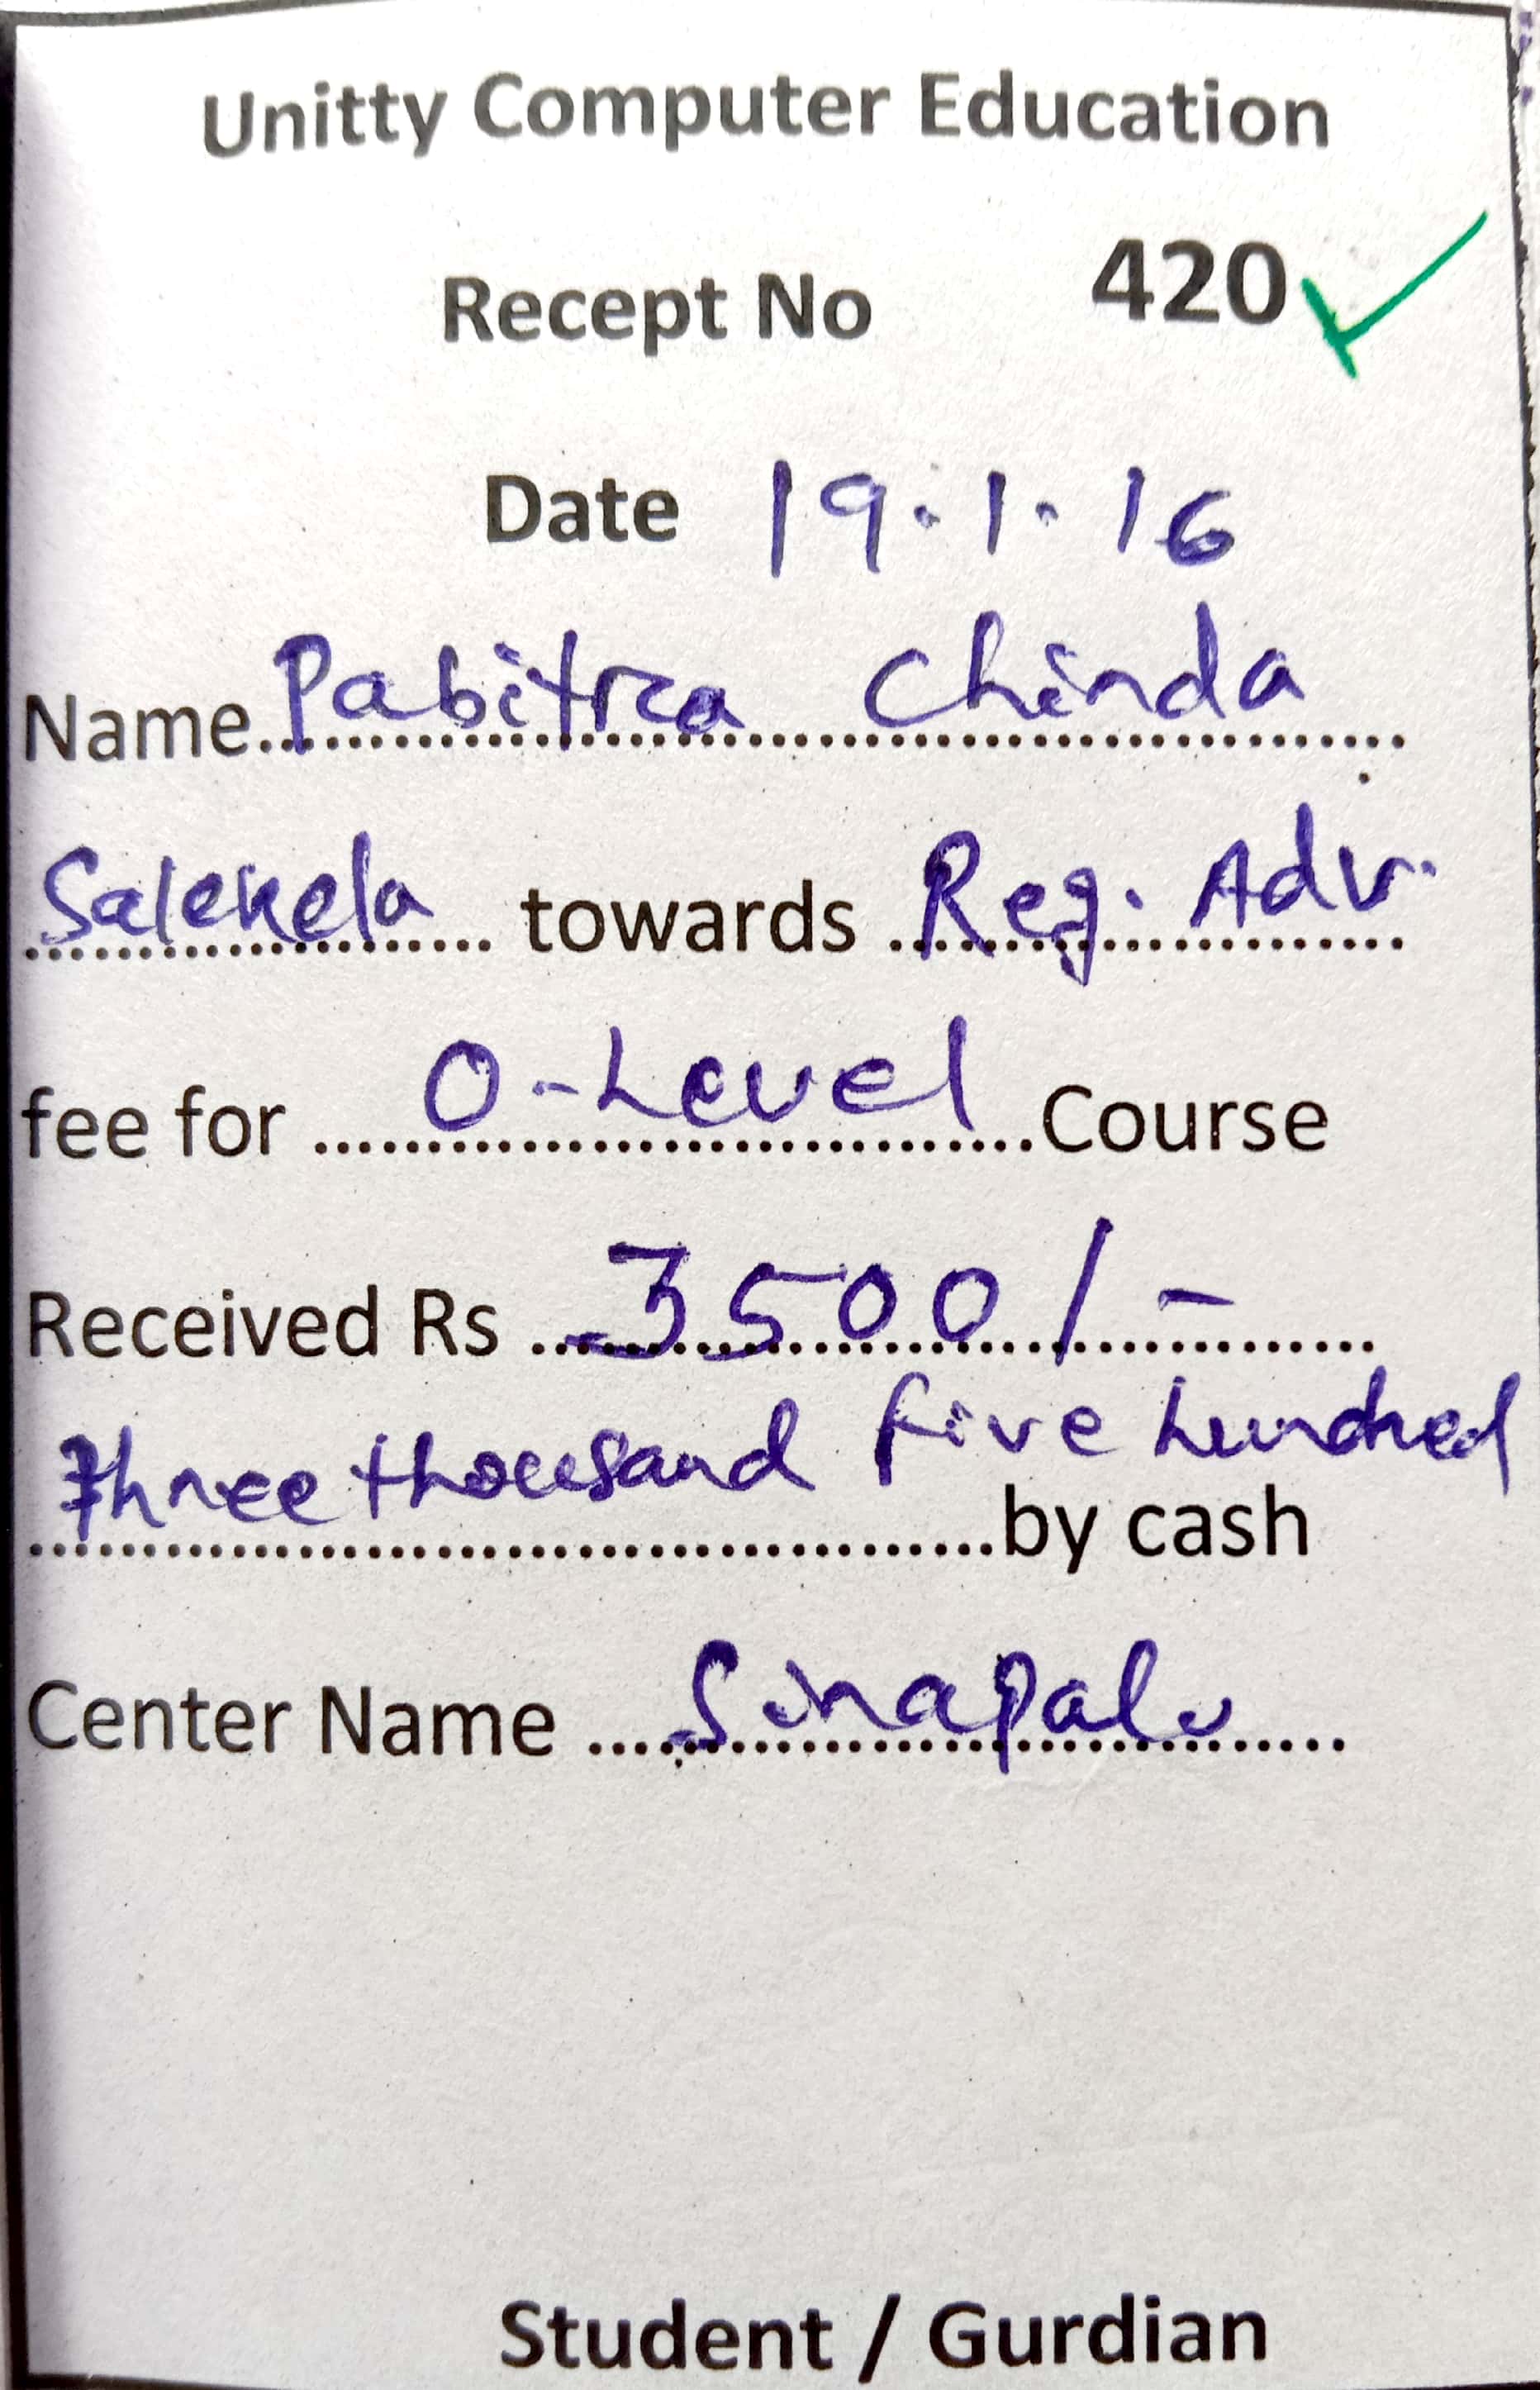 Unitty Computer Education
Recept No 420
Date 19.1.16
Name Pabitra Chinda
Salekela towards Reg. Adv.
fee for O-Level Course
Received Rs 3500/-
Three thousand five hundred
by cash
Center Name Sinapali
Student / Gurdian